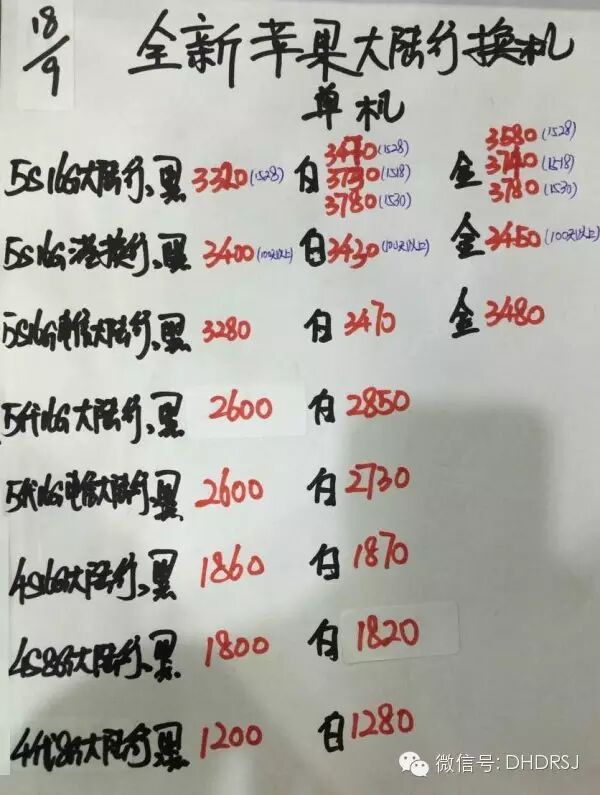 18/9
全新苹果大陆行换机
单机
5S16G大陆行、黑 3320(1528) 白 3470(1528) 金 3580(1528)
3730(1518) 3740(1518)
3780(1530) 3780(1530)
5S16G港换行、黑 3400(100天以上) 白 3430(100天以上) 金 3450(100天以上)
5S16G电信大陆行、黑 3280 白 3470 金 3480
5代16G大陆行、黑 2600 白 2850
5代16G电信大陆行、黑 2600 白 2730
4S16G大陆行、黑 1860 白 1870
4S8G大陆行、黑 1800 白 1820
4代8G大陆行、黑 1200 白 1280
微信号: DHDRSJ